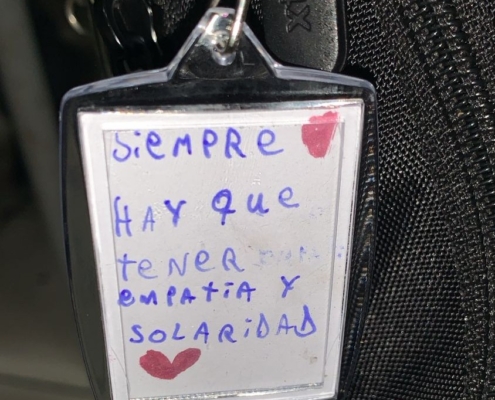 SiEMPRE
HAY que
teNER
EMPAtiA Y
SOLARiDAD